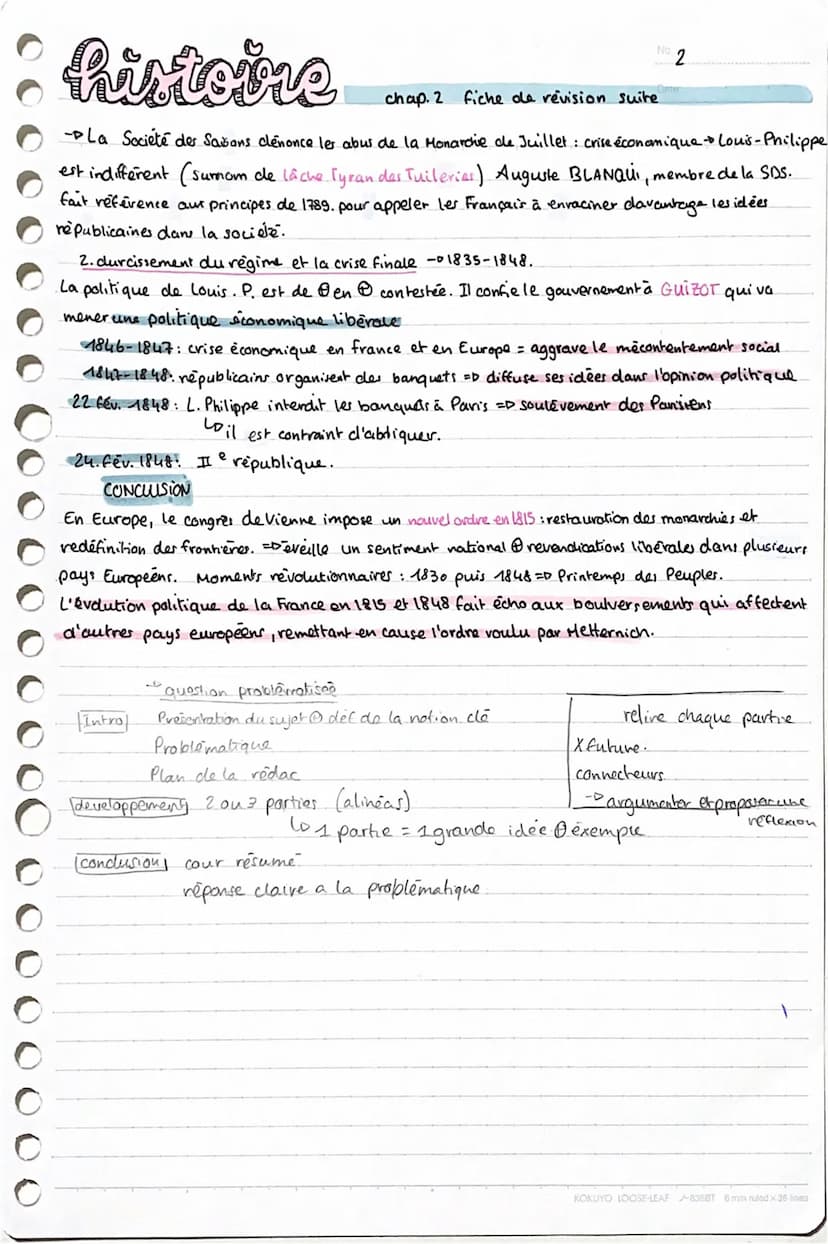 histoire
No. 2
chap. 2 fiche de révision suite
→ La Société des Saisons dénonce les abus de la Monarchie de Juillet : crise économique → Louis-Philippe
est indifférent (surnom de lâche Tyran des Tuileries) Auguste BLANQUI, membre de la SDS.
fait référence aux principes de 1789. pour appeler les Français à enraciner davantage les idées
républicaines dans la société.
2. durcissement du régime et la crise finale → 1835-1848.
La politique de Louis. P. est de ⊕ en ⊕ contestée. Il confie le gouvernement à GUIZOT qui va
mener une politique économique libérale
1846-1847 : crise économique en france et en Europe = aggrave le mécontentement social
1847-1848. républicains organisent des banquets => diffuse ses idées dans l'opinion politique
22 fév. 1848 : L. Philippe interdit les banquets à Paris => soulèvement des Parisiens
↳ il est contraint d'abdiquer.
24. fév. 1848 : IIe république.
CONCLUSION
En Europe, le congrès de Vienne impose un nouvel ordre en 1815 : restauration des monarchies et
redéfinition des frontières. => éveille un sentiment national ⊕ revendications libérales dans plusieurs
pays Européens. Moments révolutionnaires : 1830 puis 1848 => Printemps des Peuples.
L'évolution politique de la France en 1815 et 1848 fait écho aux boulversements qui affectent
d'autres pays européens, remettant en cause l'ordre voulu par Metternich.
→ question problématisée
Intro Présentation du sujet ⊕ déf de la notion clé
Problématique
Plan de la rédac
développement 2 ou 3 parties (alinéas)
↳ 1 partie = 1 grande idée ⊕ éxemple
conclusion cour résumé
réponse claire a la problématique.
relire chaque partie
X future.
connecteurs
→ argumenter et proposer une
réflexion
KOKUYO LOOSE-LEAF ノ-836BT 6 mm ruled × 36 lines